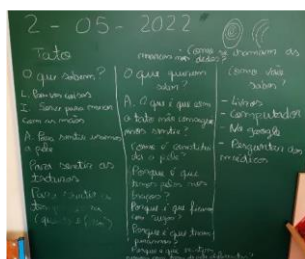 2 - 05 - 2022
Tato
Como se chamam as
marcas nos dedos?
O que sabem?
L. Para sentir coisas
I. Serve para mexer
com as mãos
A. Para sentir usamos
a pele
Para sentir as
texturas
Para sentir
O que querem
saber?
A. O que é que com
o tato não conseguimos
sentir?
Como é constituída
a pele?
Porque é que
temos pelos nos
braços?
Porque é que ficamos
com rugas?
Porque é que temos
Porque é que
Como vão
saber?
- Livros
- Computador
- No google
- Perguntar aos
médicos